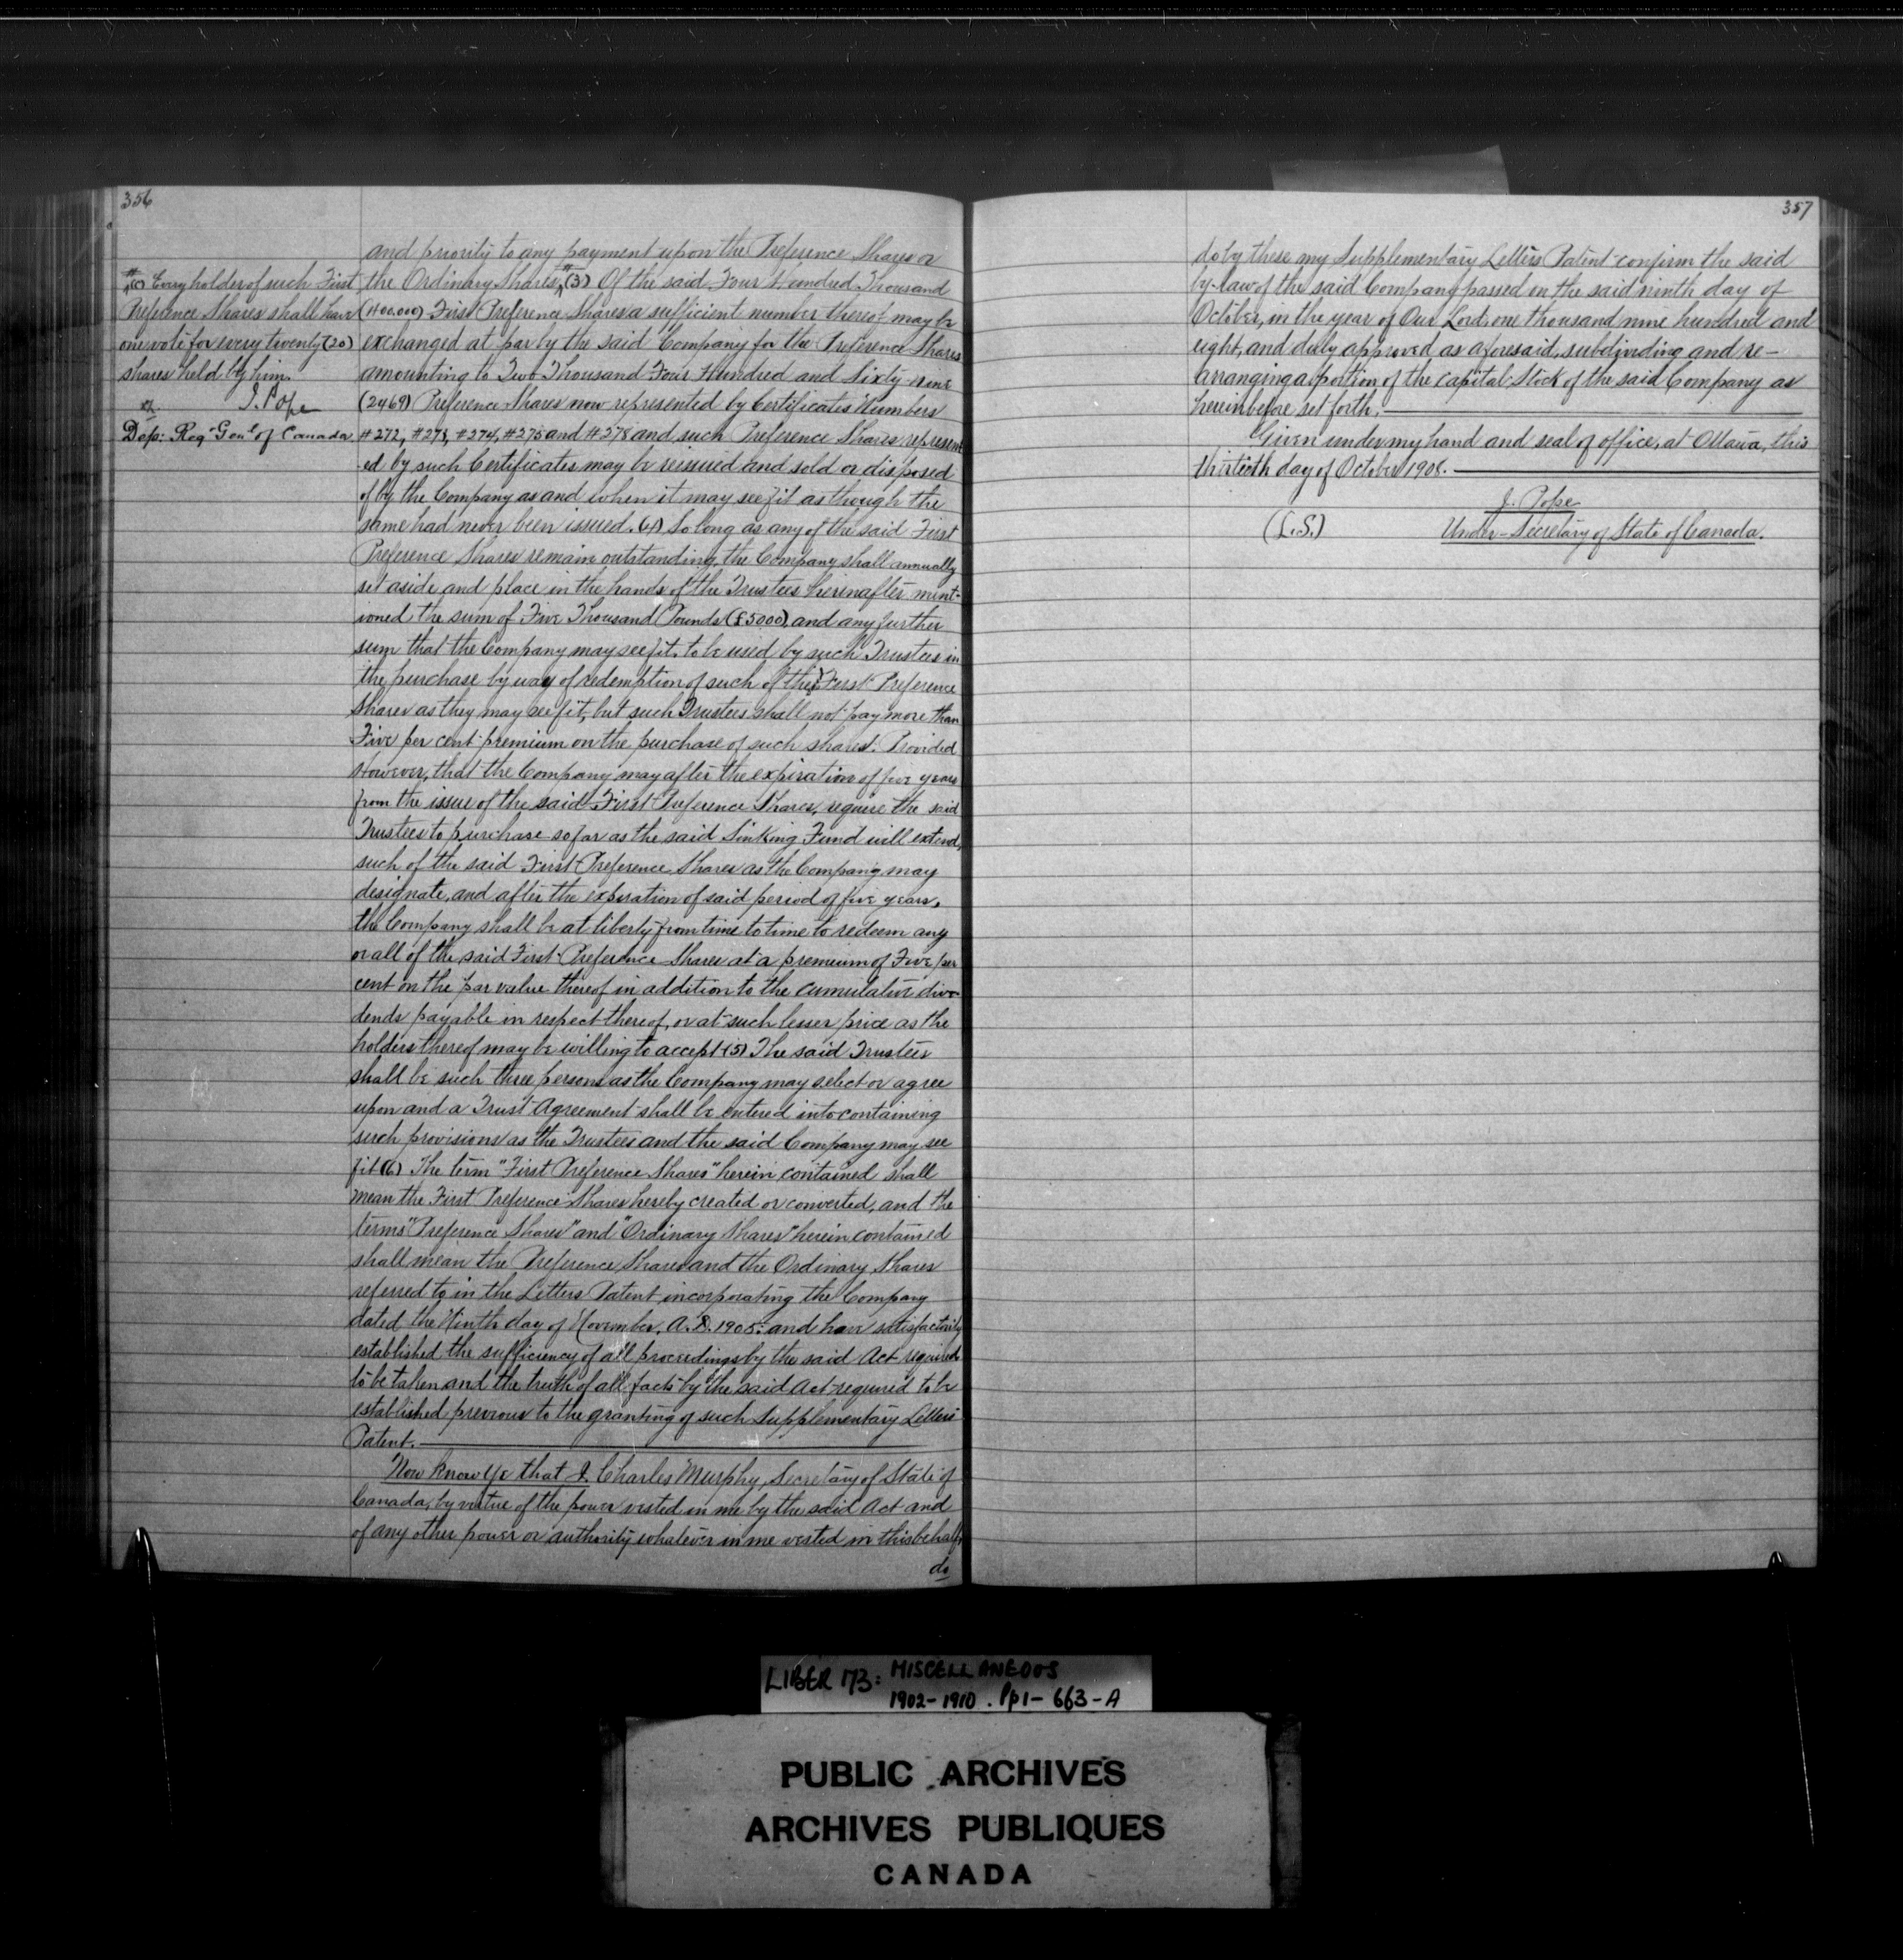 356
# (c) Every holder of such First
Preference Shares shall have
one vote for every twenty (20)
shares held by him.
J. Pope
Dep: Reg. Genl of Canada
and priority to any payment upon the Preference Shares or
the Ordinary Shares,# (3) Of the said Four Hundred Thousand
(400,000) First Preference Shares a sufficient number thereof may be
exchanged at par by the said Company for the Preference Shares
amounting to Two Thousand Four Hundred and Sixty-nine
(2469) Preference Shares now represented by Certificates Numbers
#272, #273, #274, #275 and #278 and such Preference Shares represent-
ed by such Certificates may be reissued and sold or disposed
of by the Company as and when it may see fit as though the
same had never been issued. (4) So long as any of the said First
Preference Shares remain outstanding, the Company shall annually
set aside and place in the hands of the Trustees hereinafter ment-
ioned the sum of Five Thousand Pounds (£5000), and any further
sum that the Company may see fit, to be used by such Trustees in
the purchase by way of redemption of such of the First Preference
Shares as they may see fit, but such Trustees shall not pay more than
Five per cent premium on the purchase of such shares. Provided
However, that the Company may after the expiration of five years
from the issue of the said First Preference Shares, require the said
Trustees to purchase so far as the said Sinking Fund will extend,
such of the said First Preference Shares as the Company may
designate, and after the expiration of said period of five years,
the Company shall be at liberty from time to time to redeem any
or all of the said First Preference Shares at a premium of Five per
cent on the par value thereof in addition to the cumulative divi-
dends payable in respect thereof, or at such lesser price as the
holders thereof may be willing to accept (5) The said Trustees
shall be such three persons as the Company may select or agree
upon and a Trust Agreement shall be entered into containing
such provisions as the Trustees and the said Company may see
fit (6) The term "First Preference Shares" herein contained shall
mean the First Preference Shares hereby created or converted, and the
terms "Preference Shares" and "Ordinary Shares" herein contained
shall mean the Preference Shares and the Ordinary Shares
referred to in the Letters Patent incorporating the Company
dated the Ninth day of November, A.D. 1905: and have satisfactorily
established the sufficiency of all proceedings by the said Act required
to be taken and the truth of all facts by the said Act required to be
established previous to the granting of such Supplementary Letters
Patent.
Now Know Ye that I, Charles Murphy, Secretary of State of
Canada, by virtue of the power vested in me by the said Act and
of any other power or authority whatever in me vested in this behalf,
do
357
do by these my Supplementary Letters Patent confirm the said
by-law of the said Company passed on the said ninth day of
October, in the year of Our Lord, one thousand nine hundred and
eight, and duly approved as aforesaid, subdividing and re-
arranging a portion of the Capital Stock of the said Company as
hereinbefore set forth.
Given under my hand and seal of office, at Ottawa, this
thirtieth day of October 1908.
J. Pope
(L.S.) Under-Secretary of State of Canada.
LIBER 173: MISCELLANEOUS
1902-1910. Pp1-663-A
PUBLIC ARCHIVES
ARCHIVES PUBLIQUES
CANADA